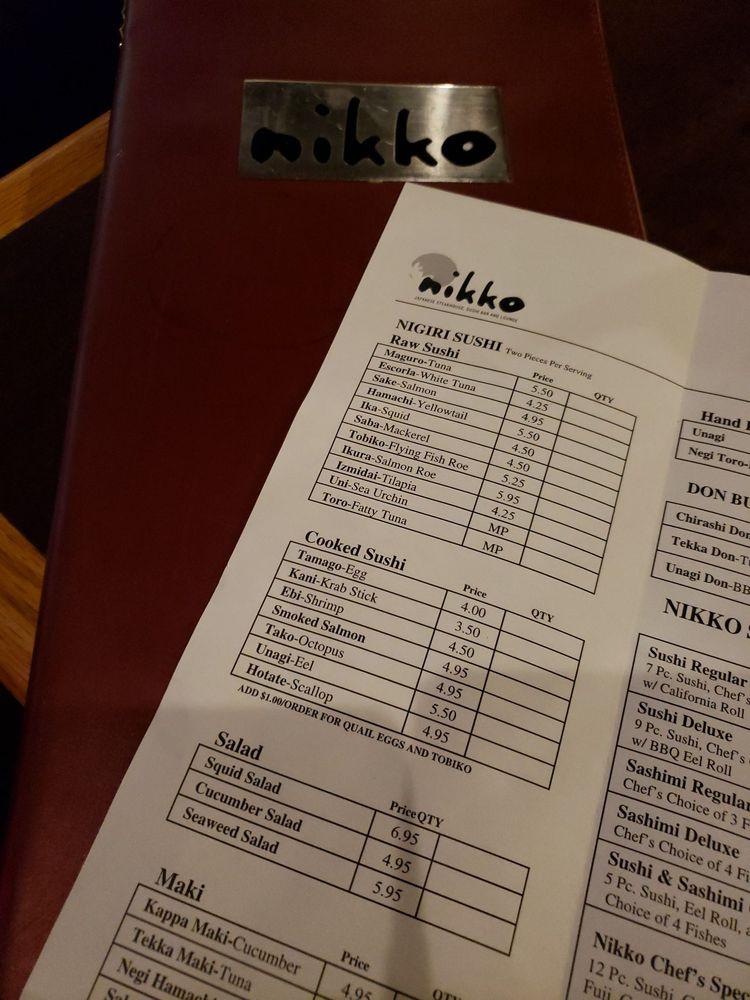 nikko
nikko
JAPANESE STEAKHOUSE, SUSHI BAR AND LOUNGE
NIGIRI SUSHI Two Pieces Per Serving
Raw Sushi Price QTY
Maguro-Tuna 5.50
Escorla-White Tuna 4.25
Sake-Salmon 4.95
Hamachi-Yellowtail 5.50
Ika-Squid 4.50
Saba-Mackerel 4.50
Tobiko-Flying Fish Roe 5.25
Ikura-Salmon Roe 5.95
Izmidai-Tilapia 4.25
Uni-Sea Urchin MP
Toro-Fatty Tuna MP
Cooked Sushi Price QTY
Tamago-Egg 4.00
Kani-Krab Stick 3.50
Ebi-Shrimp 4.50
Smoked Salmon 4.95
Tako-Octopus 4.95
Unagi-Eel 5.50
Hotate-Scallop 4.95
ADD $1.00/ORDER FOR QUAIL EGGS AND TOBIKO
Salad Price QTY
Squid Salad 6.95
Cucumber Salad 4.95
Seaweed Salad 5.95
Maki Price QTY
Kappa Maki-Cucumber 4.95
Tekka Maki-Tuna
Negi Hamach
Hand
Unagi
Negi Toro-
DON BU
Chirashi Don
Tekka Don-T
Unagi Don-BB
NIKKO S
Sushi Regular
7 Pc. Sushi, Chef's
w/ California Roll
Sushi Deluxe
9 Pc. Sushi, Chef's
w/ BBQ Eel Roll
Sashimi Regular
Chef's Choice of 3 F
Sashimi Deluxe
Chef's Choice of 4 Fi
Sushi & Sashimi
5 Pc. Sushi, Eel Roll, a
Choice of 4 Fishes
Nikko Chef's Spec
12 Pc. Sushi